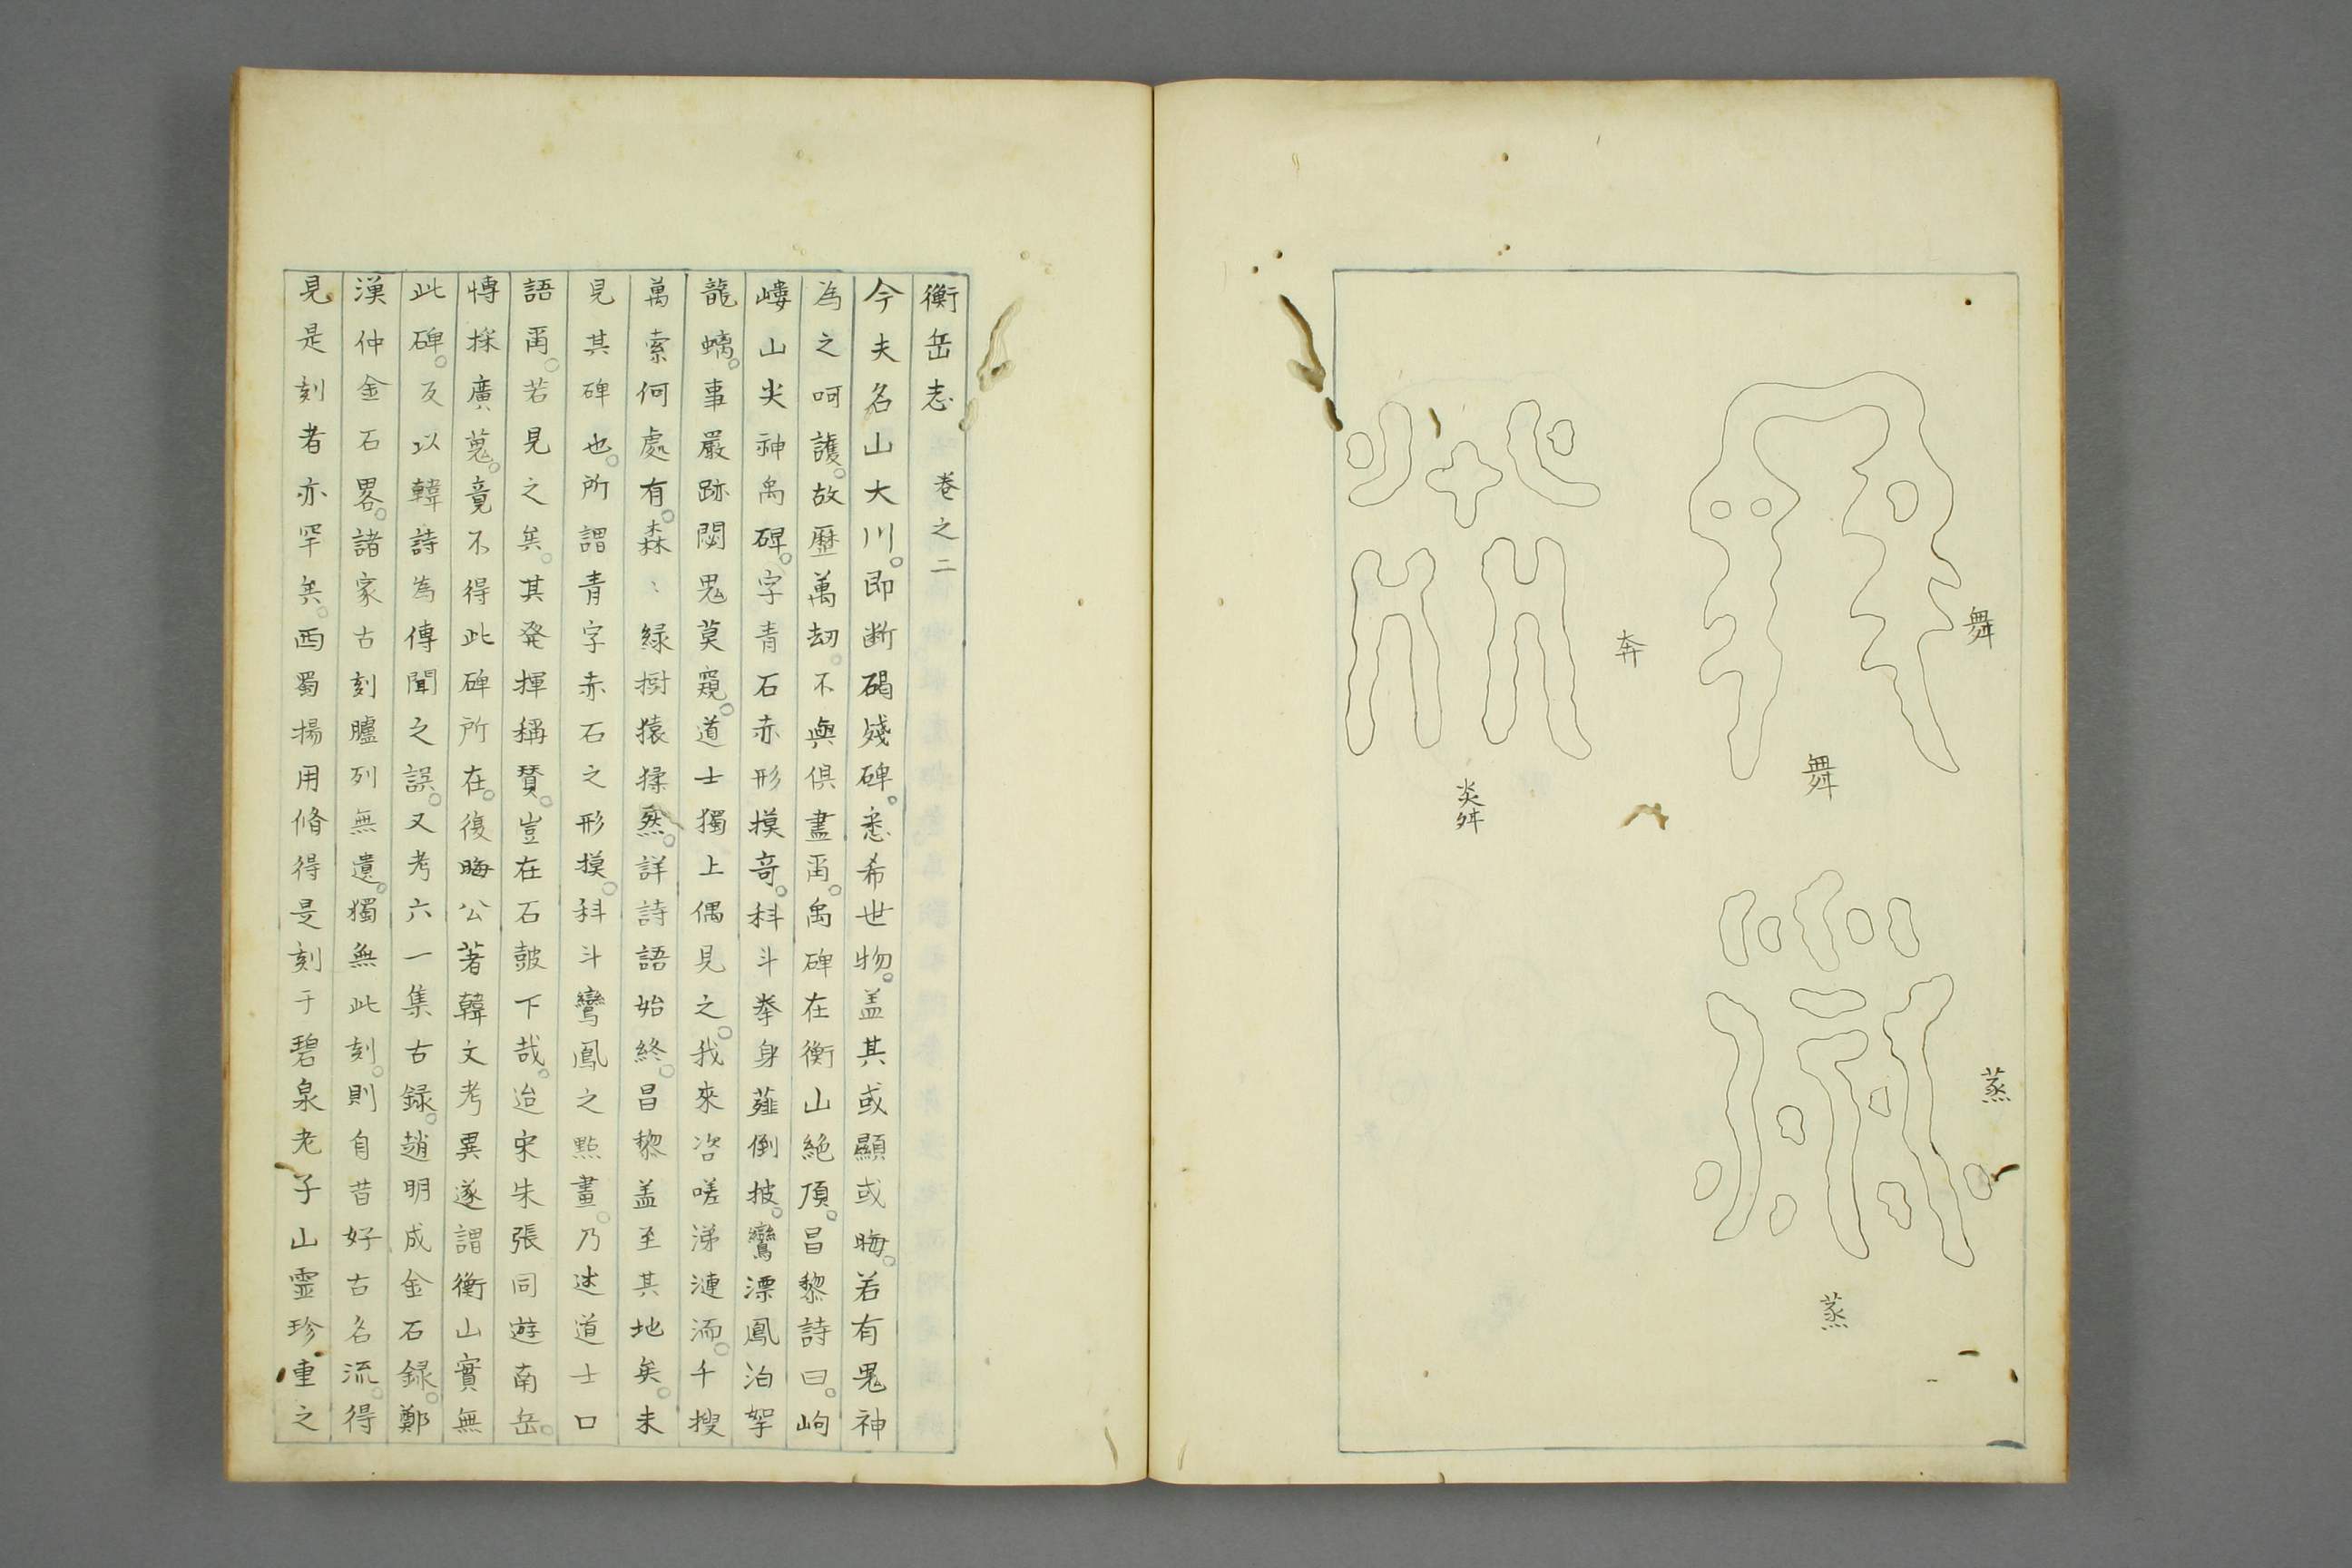 舞
舞
蒸
蒸
奔
衡岳志　卷之二
今夫名山大川。即断碣殘碑。悉希世物。盖其或顯或晦。若有鬼神
為之呵護。故歷萬刼。不與俱盡甭。禹碑在衡山絶頂。昌黎詩曰。岣
嶁山尖神禹碑。字青石赤形摸奇。科斗拳身薤倒披。鸞漂鳳泊拏
龍螭。事嚴跡閟鬼莫窺。道士獨上偶見之。我來咨嗟涕漣洏。千搜
萬索何處有。森〻緑樹猿猱然。詳詩語始終。昌黎盖至其地矣。未
見其碑也。所謂青字赤石之形摸。科斗鸞鳳之點畫。乃述道士口
語甭。若見之矣。其発揮稱賛。豈在石皷下哉。迨宋朱張同遊南岳。
愽採廣蒐。竟不得此碑所在。復晦公著韓文考異遂謂衡山實無
此碑。反以韓詩為傳聞之誤。又考六一集古録。趙明成金石録。鄭
漢仲金石畧。諸家古刻臚列無遺。獨無此刻。則自昔好古名流。得
見是刻者亦罕矣。西蜀揚用脩得是刻于碧泉老子山靈珍重之